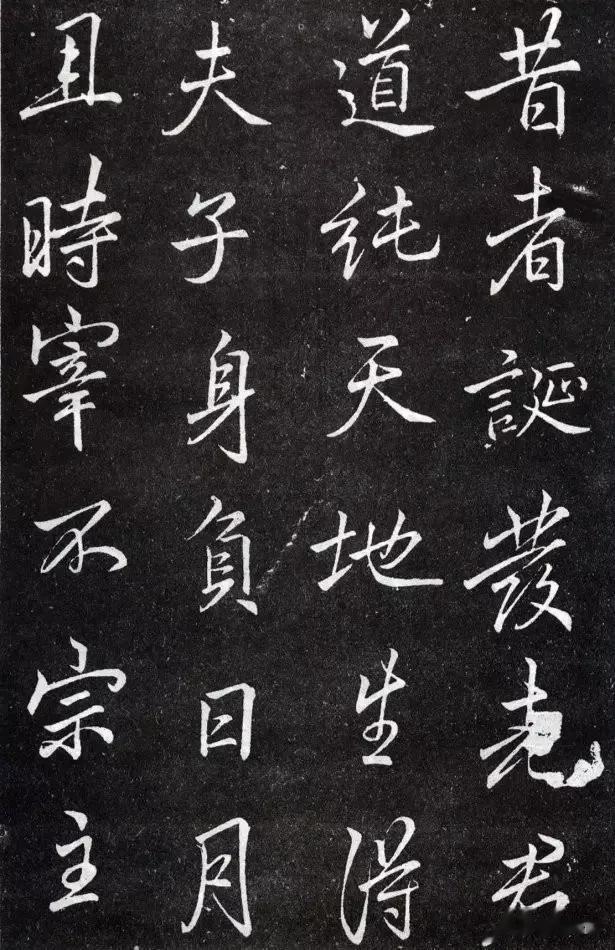 昔者誕發老君
道純天地生得
夫子身負日月
且時宰不宗主